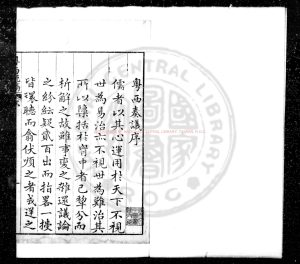 粤西奏議序
儒者以其心運用於天下不視
世為易治亦不視世為難治其
所以隱括於胸中者已犂分而
析解之故雖事變之雜還議論
之紛紜疑貳百出而指畧一授
皆環聽而俞伏順之者或逆之